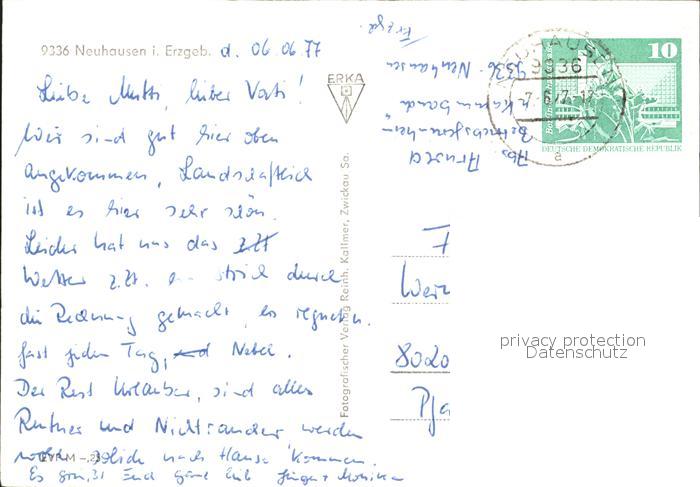 9336 Neuhausen i. Erzgeb. d. 06.06.77
Liebe Mutti, lieber Vati!
Wir sind gut hier oben
angekommen, Landschaftlich
ist es hier sehr schön.
Leider hat uns das
Wetter z.Zt. ein strich durch
die Rechnung gemacht, es regnet
fast jeden Tag, Nebel.
Der Rest Urlauber, sind alles
Rentner und Nichtraucher werden
nach Hause kommen.
Es grüßt Euch ganz lieb Jürgen + Monika
ERKA
Fotografischer Verlag Reinh. Kallmer, Zwickau Sa.
Abs.
Betriebsferienheim
9336 Neuhausen
Erzgeb.
NEUHAUSEN
9336
-7.6.77-17
a
10
DEUTSCHE DEMOKRATISCHE REPUBLIK
F
8020
privacy protection
Datenschutz